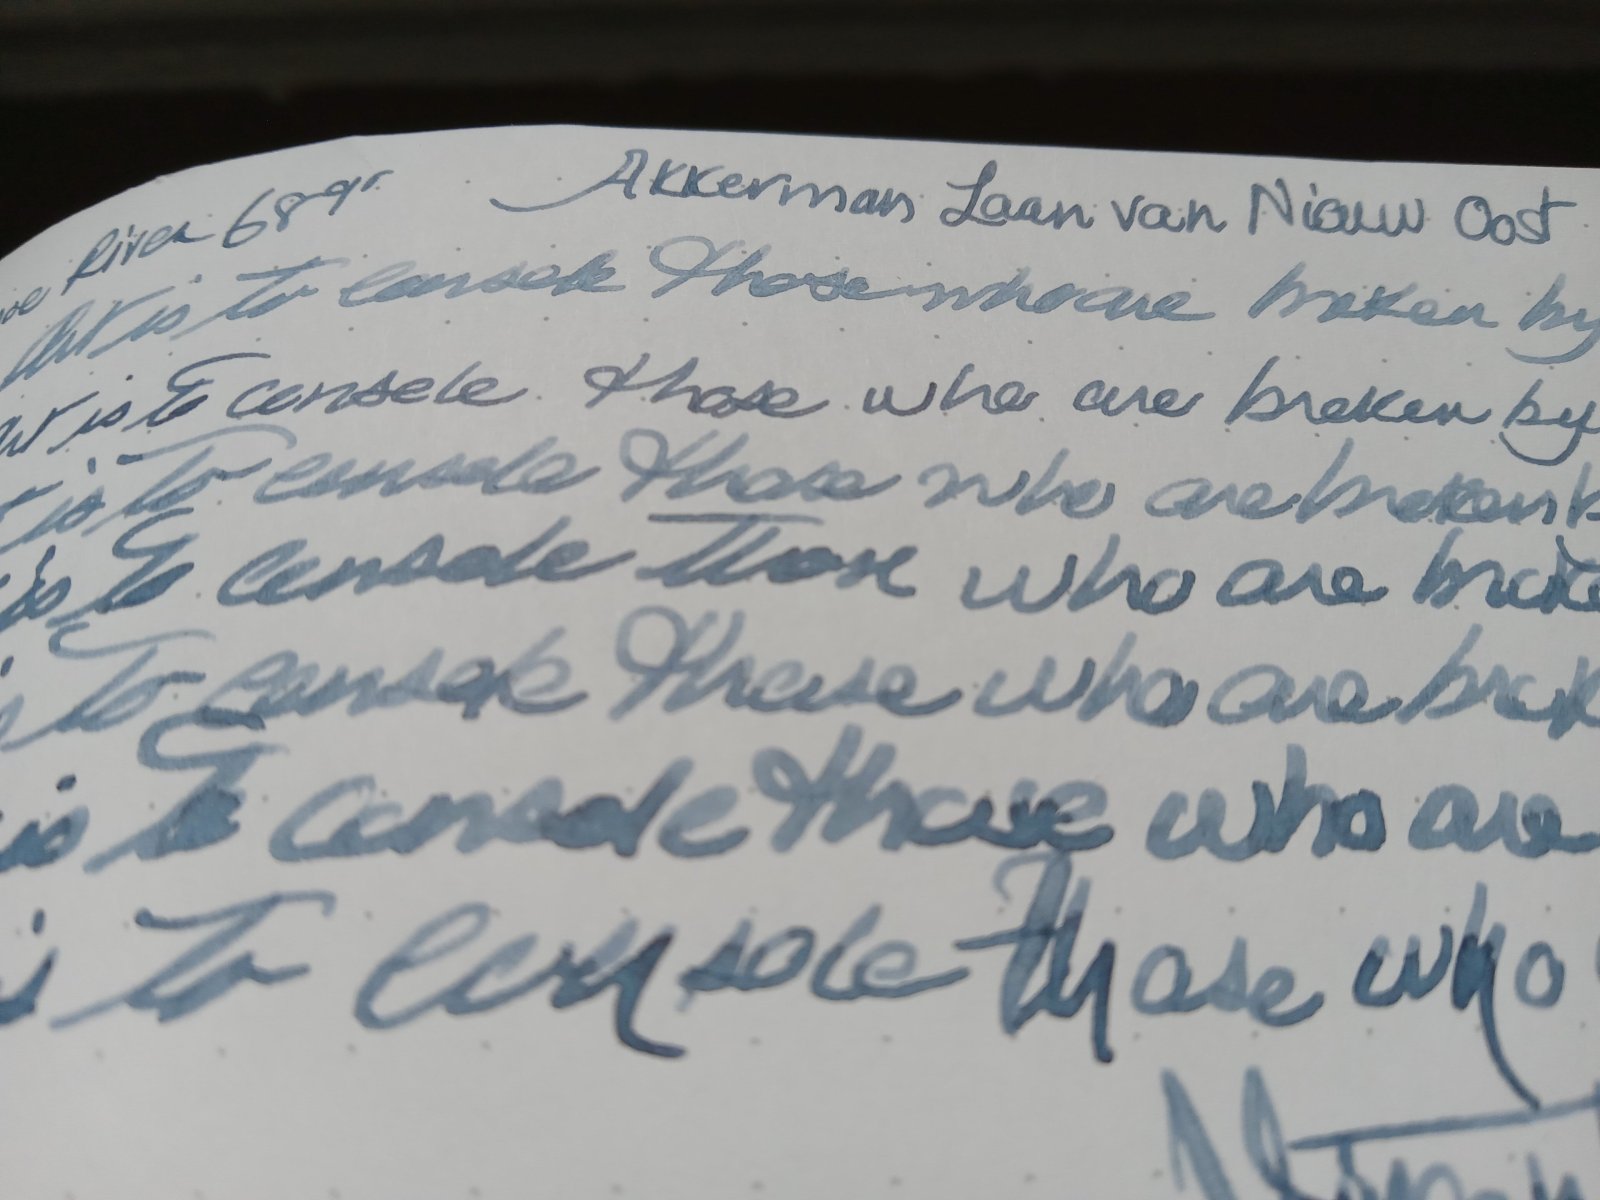 River 68 gr. Akkerman Laan van Niauw Oost
Art is to console those who are broken by
Art is to console those who are broken by
is to console those who are broken
is to console Those who are
is to console those who are
is to console those who are
is to console those who